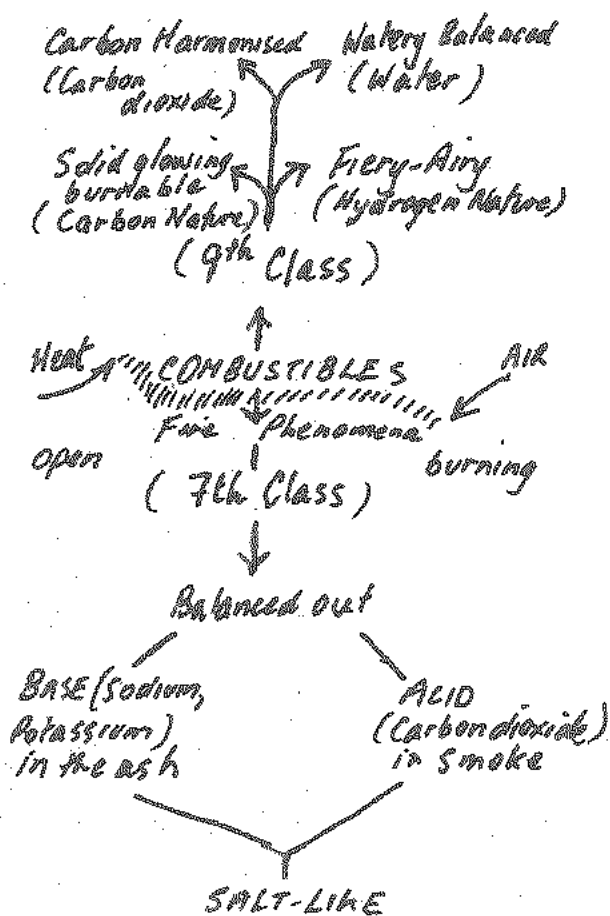 Carbon Harmonised
(Carbon
dioxide)
Watery Balanced
(Water)
Solid glowing
burnable
(Carbon Nature)
Fiery-Airy
(Hydrogen Nature)
(9th Class)
Heat
COMBUSTIBLES
AIR
Fire Phenomena
open
burning
(7th Class)
Balanced out
BASE (Sodium,
Potassium)
in the ash
ACID
(Carbondioxide)
in smoke
SALT-LIKE